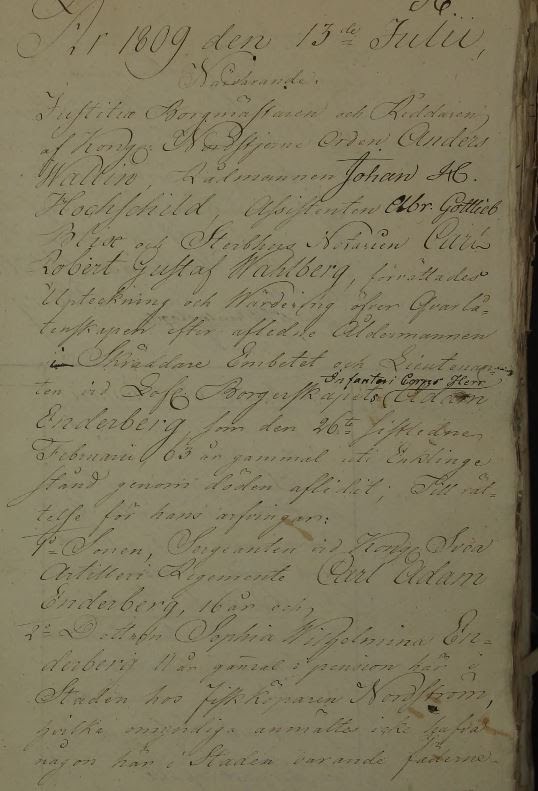 År 1809 den 13de Julii,
Närvarande.
Justitiæ Borgmästaren och Riddaren
af Kongl. Nordstjerne Orden Anders
Wallin, Rådmannen Johan H.
Hochschild, Assistenten Abr. Gottlieb
och Sterbhus Notarien Carl
Robert Gustaf Wahlberg, förrättades
Upteckning och Wärdering öfver Qvarlå-
tenskapen efter aflidne Åldermannen
i Skräddare Embetet och Lieutenan-
ten vid Infanteri Corps Herr
Borgerskapets Adam
Enderberg, som den 26te sistledne
Februarii 63 år gammal uti Enklinge
stånd genom döden aflidit; Till rät-
telse för hans arfvingar:
1o Sonen, Sergeanten vid Kongl. Svea
Artilleri Regemente Carl Adam
Enderberg, 16 år och,
2o Dottren Sophia Wilhelmina En-
derberg 11 år gammal i pension här i
Staden hos fiskköparen Nordström,
hvilke omyndige anmältes icke hafva
någon här i Staden varande fäderne-